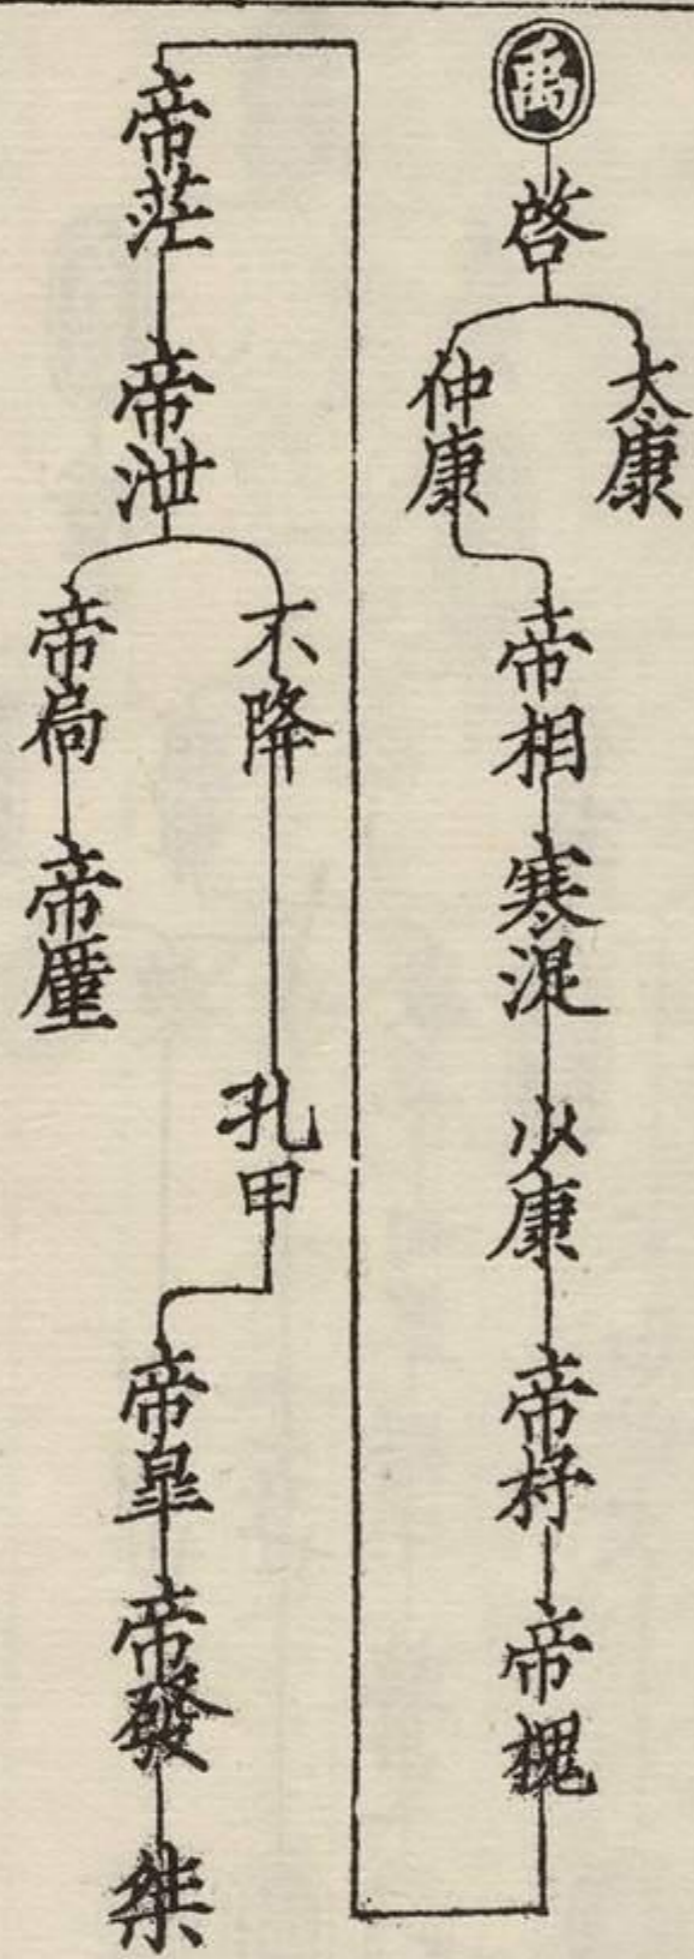 禹
啓
太康
仲康
帝相
寒浞
少康
帝杼
帝槐
帝茫
帝泄
不降
帝扃
帝廑
孔甲
帝皐
帝發
桀